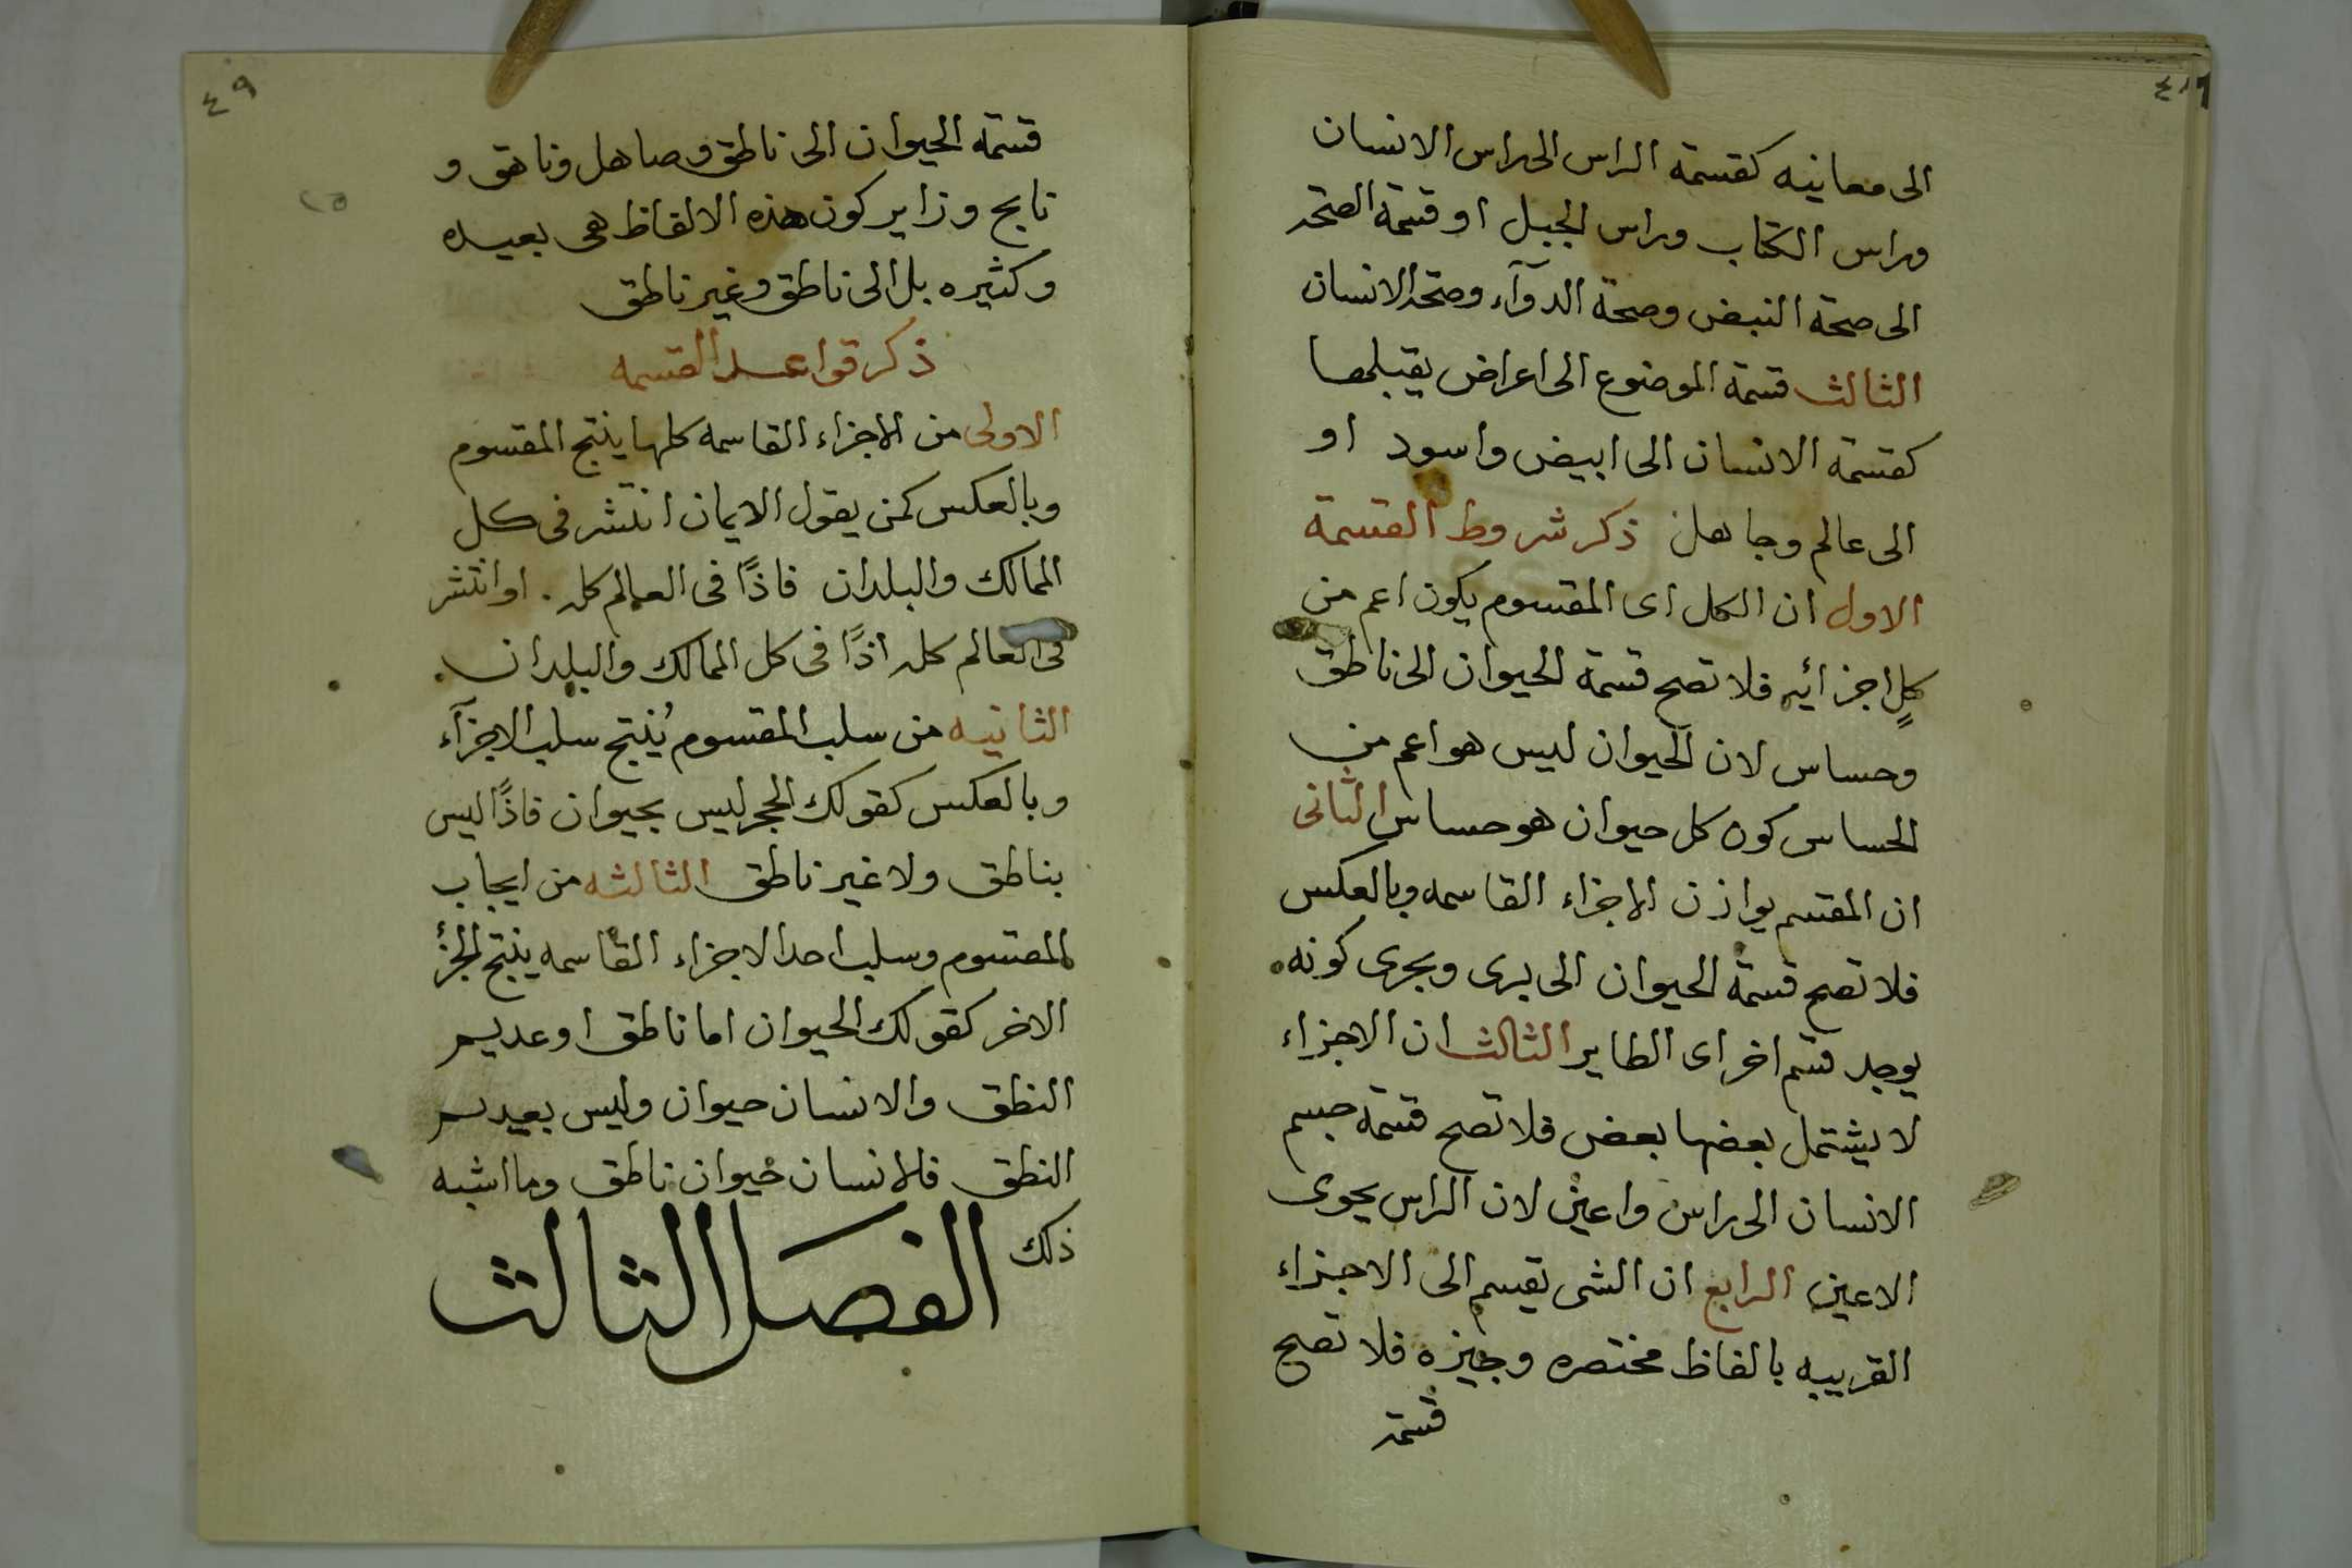 الى معانيه كقسمة الراس الى راس الانسان
وراس الكتاب وراس الجبل او قسمة الصحة
الى صحة النبض وصحة الدوآء وصحة الانسان
الثالث قسمة الموضوع الى اعراض يقبلها
كقسمة الانسان الى ابيض واسود او
الى عالم وجاهل ذكر شروط القسمة
الاول ان الكل اى المقسوم يكون اعم من
كلٍ اجزائه فلا تصح قسمة الحيوان الى ناطق
وحساس لان الحيوان ليس هو اعم من
الحساس كون كل حيوان هو حساس الثانى
ان المقسم يوازن الاجزاء القاسمه وبالعكس
فلا تصح قسمة الحيوان الى برى وبحرى كونه
يوجد قسم اخر اى الطاير الثالث ان الاجزاء
لا يشتمل بعضها بعض فلا تصح قسمة جسم
الانسان الى راس واعين لان الراس يحوى
الاعين الرابع ان الشى يقسم الى الاجزاء
القريبه بالفاظ مختصره وجيزه فلا تصح
قسمة
٤٩
قسمة الحيوان الى ناطق وصاهل وناهق و
نابح وزاير كون هذه الالفاظ هى بعيده
وكثيره بل الى ناطق وغير ناطق
ذكر قواعد القسمه
الاولى من الاجزاء القاسمه كلها ينتج المقسوم
وبالعكس كمن يقول الايمان انتشر فى كل
الممالك والبلدان فاذًا فى العالم كله . او انتشر
فى العالم كله اذًا فى كل الممالك والبلدان .
الثانيه من سلب المقسوم يُنتج سلب الاجزآء
وبالعكس كقولك الحجر ليس بحيوان فاذًا ليس
بناطق ولا غير ناطق الثالثه من ايجاب
المقسوم وسلب احد الاجزاء القاسمه ينتج الجزء
الاخر كقولك الحيوان اما ناطق او عديم
النطق والانسان حيوان وليس بعديم
النطق فالانسان حيوان ناطق وما اشبه
ذلك الفصل الثالث